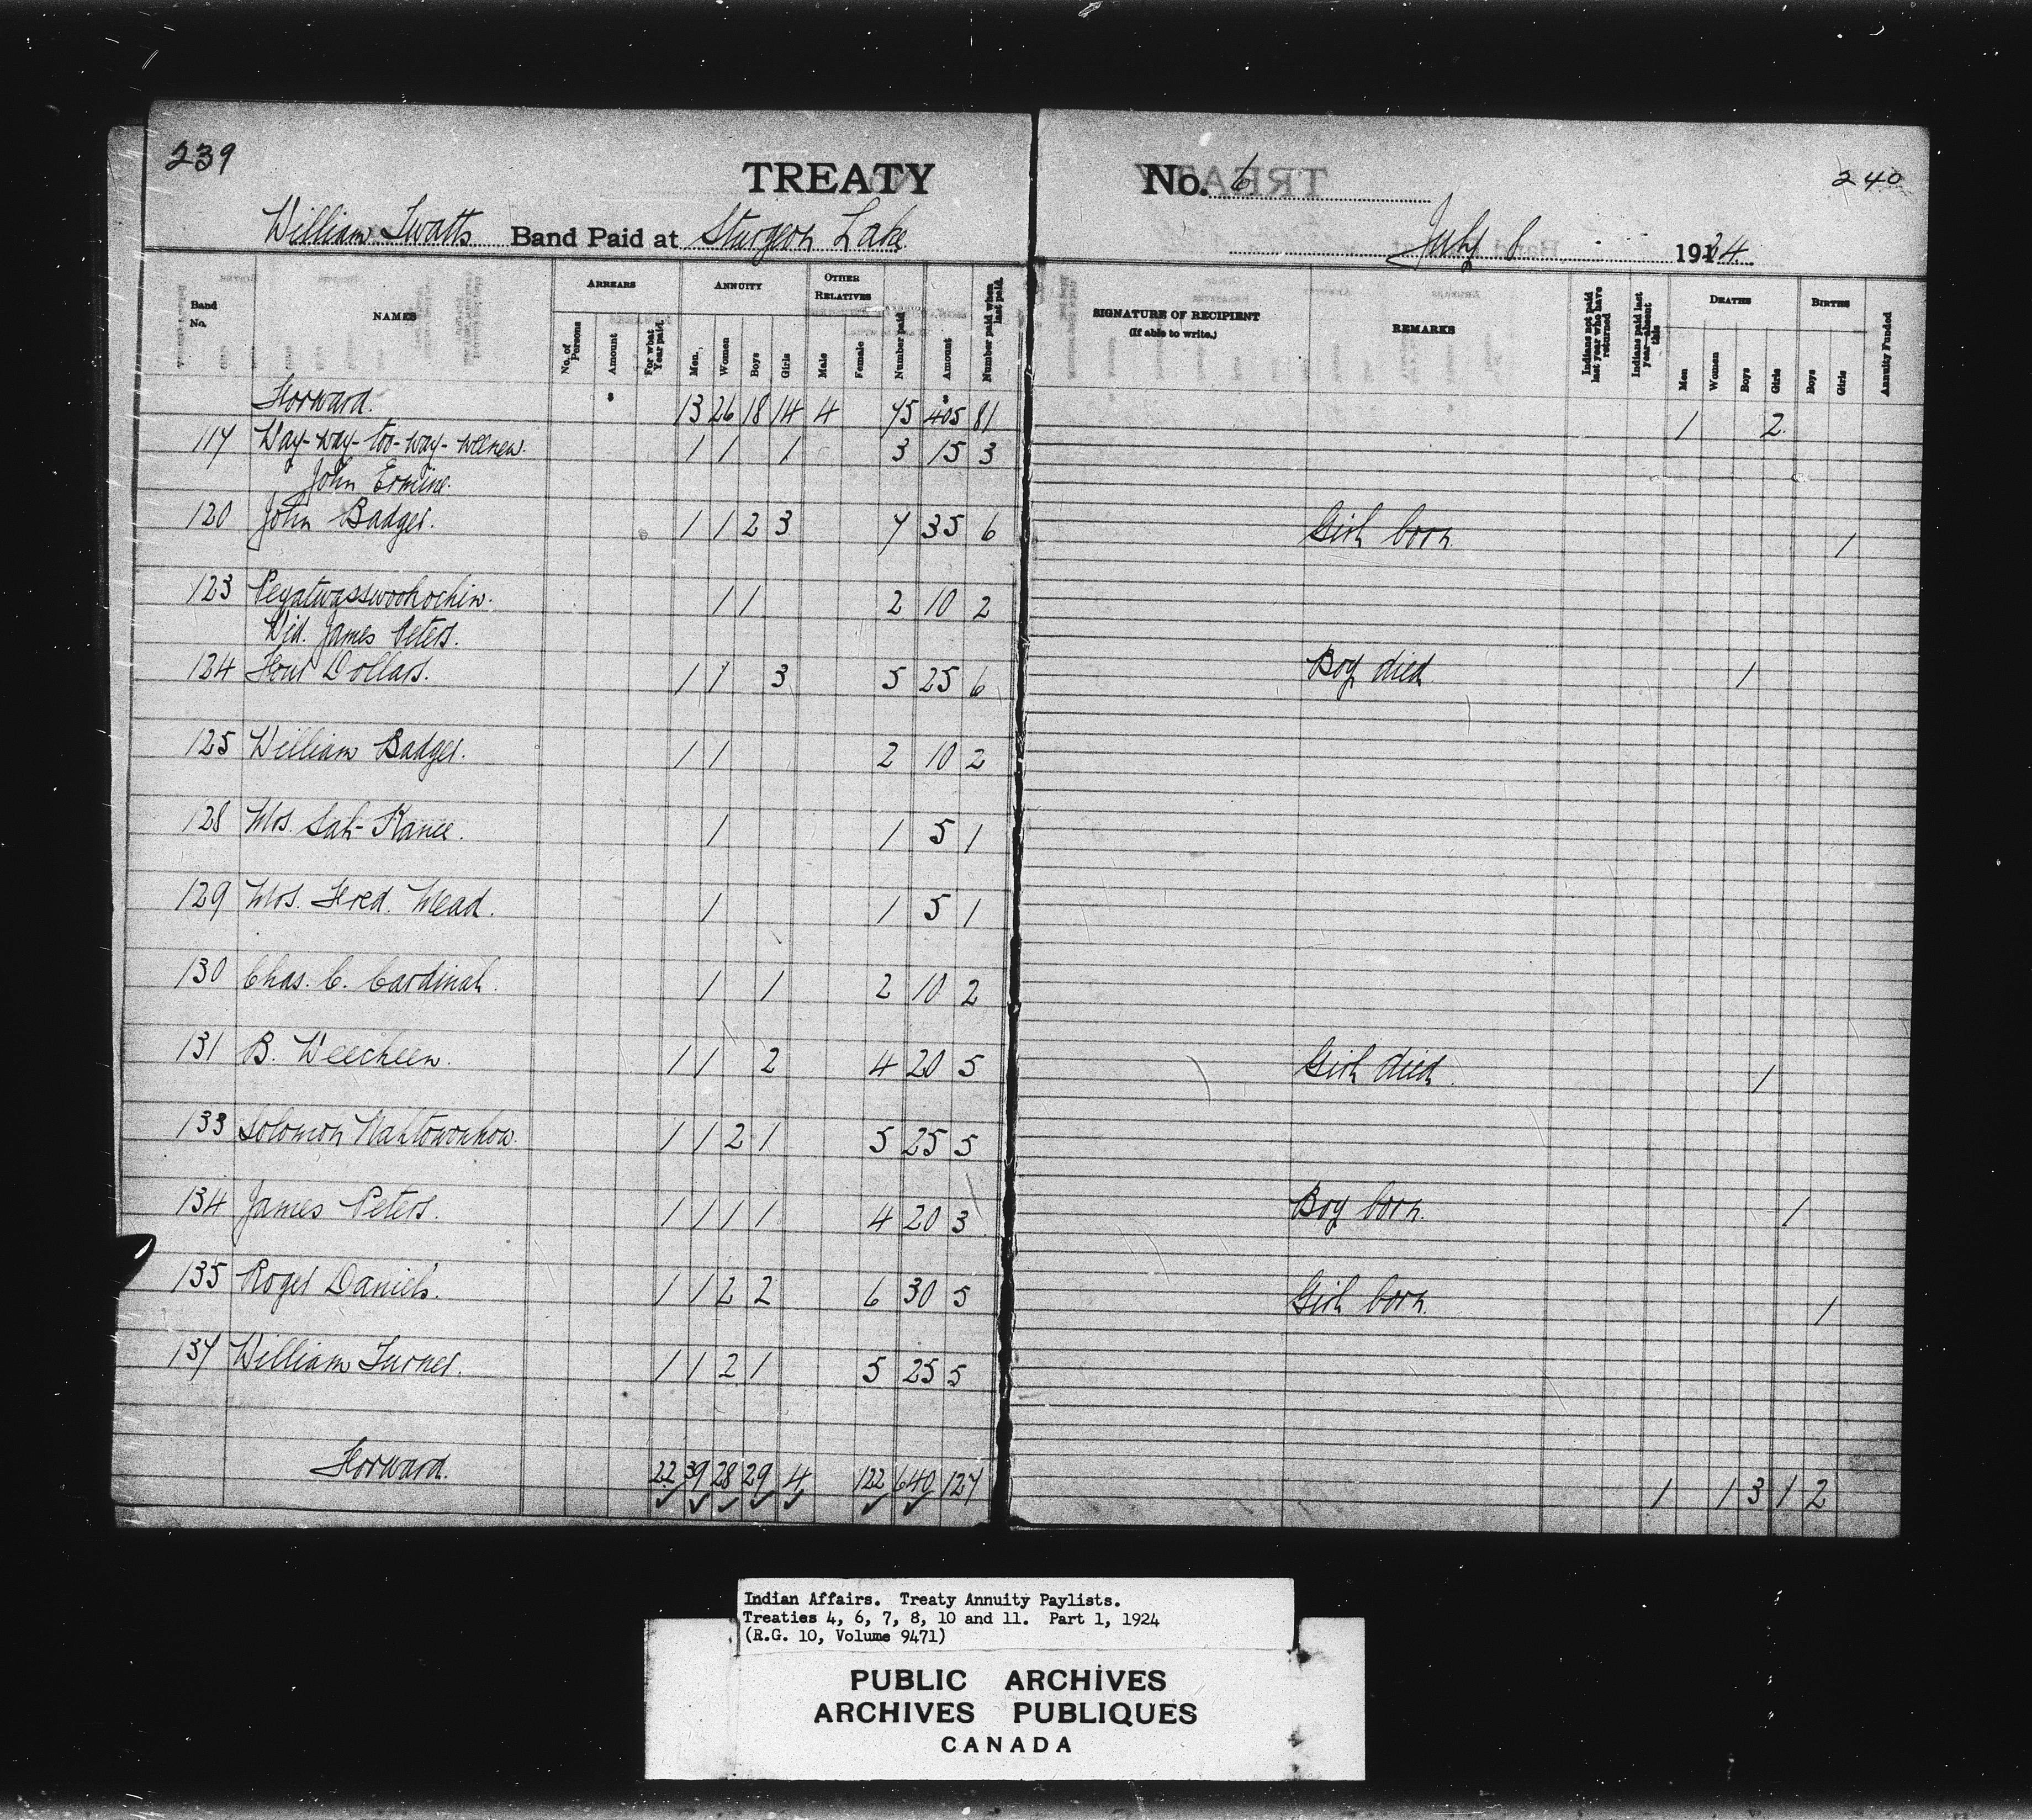 239
TREATY
No. 6
240
William Twatts Band Paid at Sturgeon Lake
July 8 1924
Band No.
NAMES
ARREARS
No. of Persons
Amount
For what Year paid
ANNUITY
Men.
Women
Boys
Girls
OTHER RELATIVES
Male
Female
Number paid
Amount
Number paid when last paid.
SIGNATURE OF RECIPIENT
(If able to write.)
REMARKS
Indians not paid last year who have returned
Indians paid last year—absent this
DEATHS
Men
Women
Boys
Girls
BIRTHS
Boys
Girls
Annuity Funded
Forward. 13 26 18 14 4 75 405 81 1 2
117 Way-way-too-way-weenew. 1 1 1 3 15 3
John Ermine.
120 John Badger. 1 1 2 3 7 35 6 Girl born 1
123 Peyatwasswoohochin. 1 1 2 10 2
Wid. James Peters.
124 Four Dollars. 1 1 3 5 25 6 Boy died 1
125 William Badger. 1 1 2 10 2
128 Mrs. Sah-Kanee. 1 1 5 1
129 Mrs. Fred. Mead. 1 1 5 1
130 Chas. C. Cardinal. 1 1 2 10 2
131 B. Weecheen. 1 1 2 4 20 5 Girl died. 1
133 Solomon Nahtowenhow. 1 1 2 1 5 25 5
134 James Peters. 1 1 1 1 4 20 3 Boy born. 1
135 Roger Daniels. 1 1 2 2 6 30 5 Girl born. 1
137 William Turner. 1 1 2 1 5 25 5
Forward. 22 39 28 29 4 122 640 127 1 1 3 1 2
Indian Affairs. Treaty Annuity Paylists.
Treaties 4, 6, 7, 8, 10 and 11. Part 1, 1924
(R.G. 10, Volume 9471)
PUBLIC ARCHIVES
ARCHIVES PUBLIQUES
CANADA